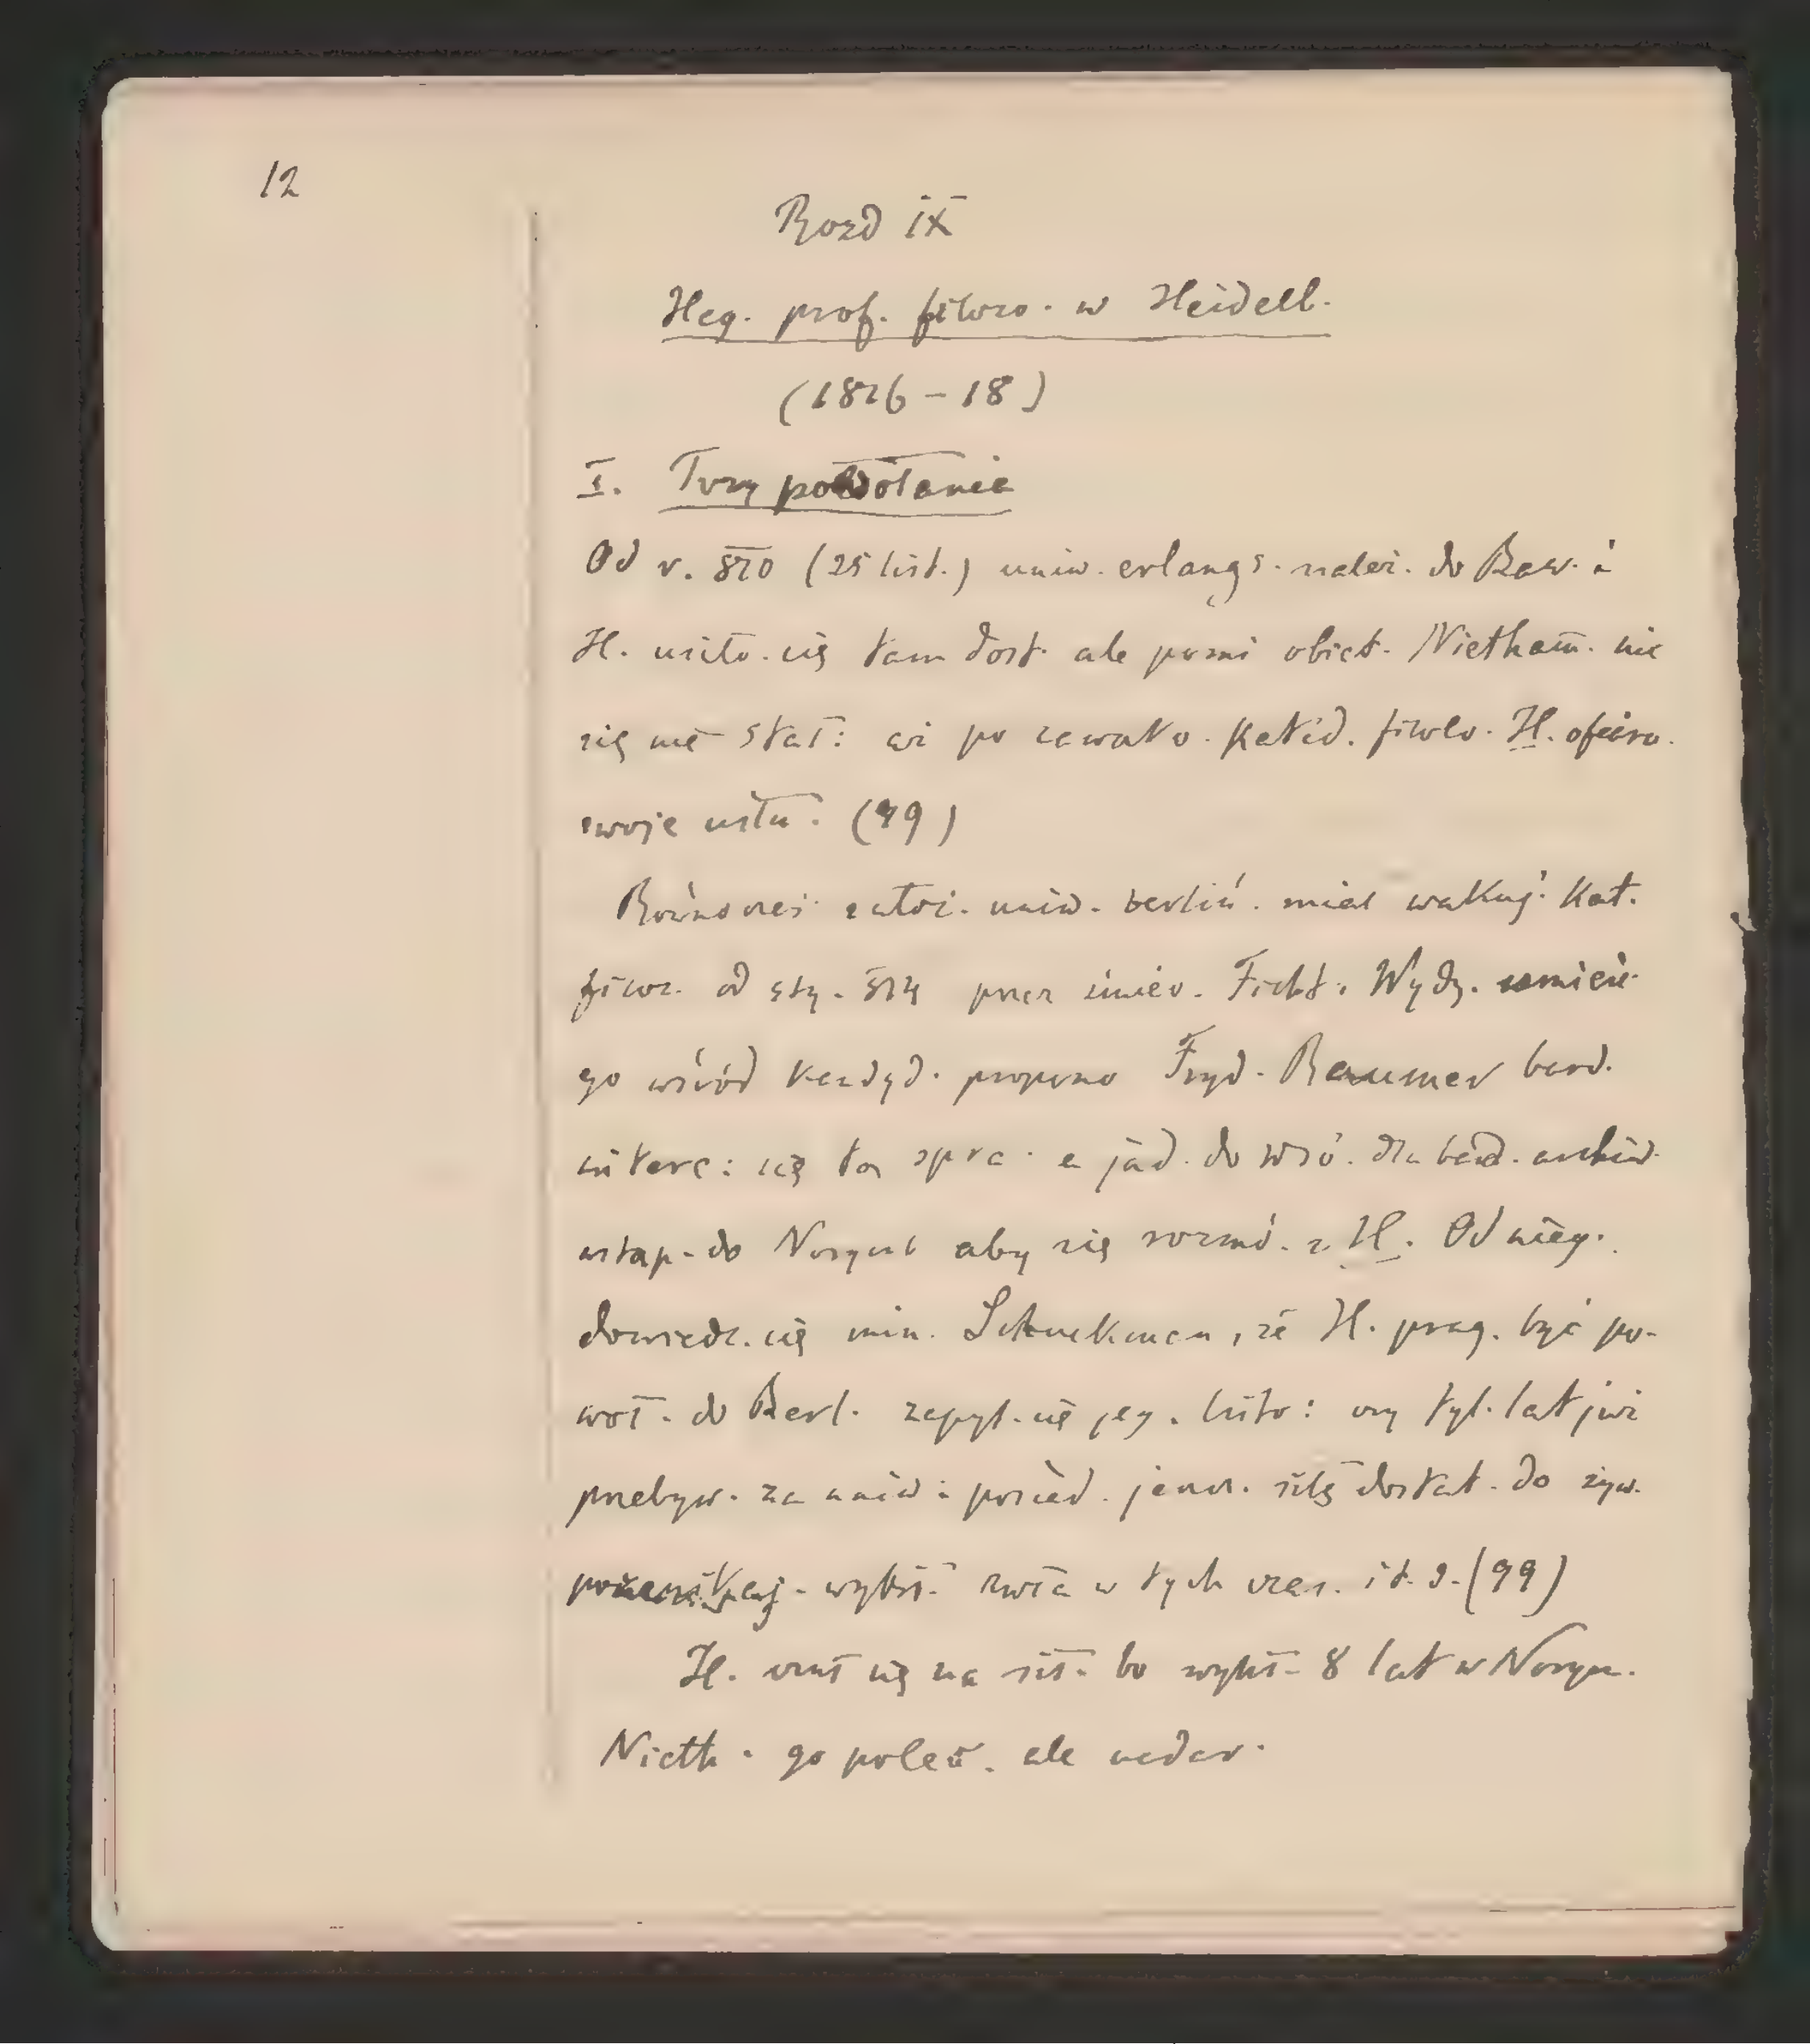 12
Rozd IX
Heg. prof. filozo. w Heidelb.
(1816-18)
I. Trzy powołania
Od r. 810 (25 list.) uniw. erlangs. należ. do Baw. i
H. usiło. się tam dost. ale pomi obiet. Nietham. nic
się nie stał: aż po zawako. kated. filolo. H. ofiaro.
swoje usłu. (99)
Równocześ. założ. uniw. berliń. miał wakuj. kat.
filoz. od sty. 814 przez śmier. Ficht. Wydz. umieś.
go wśród kandyd. propono Fryd. Raumer bard.
intere: się tą spra. a jad. do Wło. dla bad. archiw.
wstąp. do Norymb aby się rozmó. z H. Od nieg.
dowiedz. się min. Schuckman, że H. prag. być po-
woł. do Berl. zapyt. się jeg. listo: czy tyl. lat już
przebyw. za uniw: posiad. jeszcz. siłę dostat. do żyw.
wykł. zwła w tych czas. it. d. (99)
H. czuł się na sił. bo wykł. 8 lat w Norym.
Nieth. go polec. ale nadar.